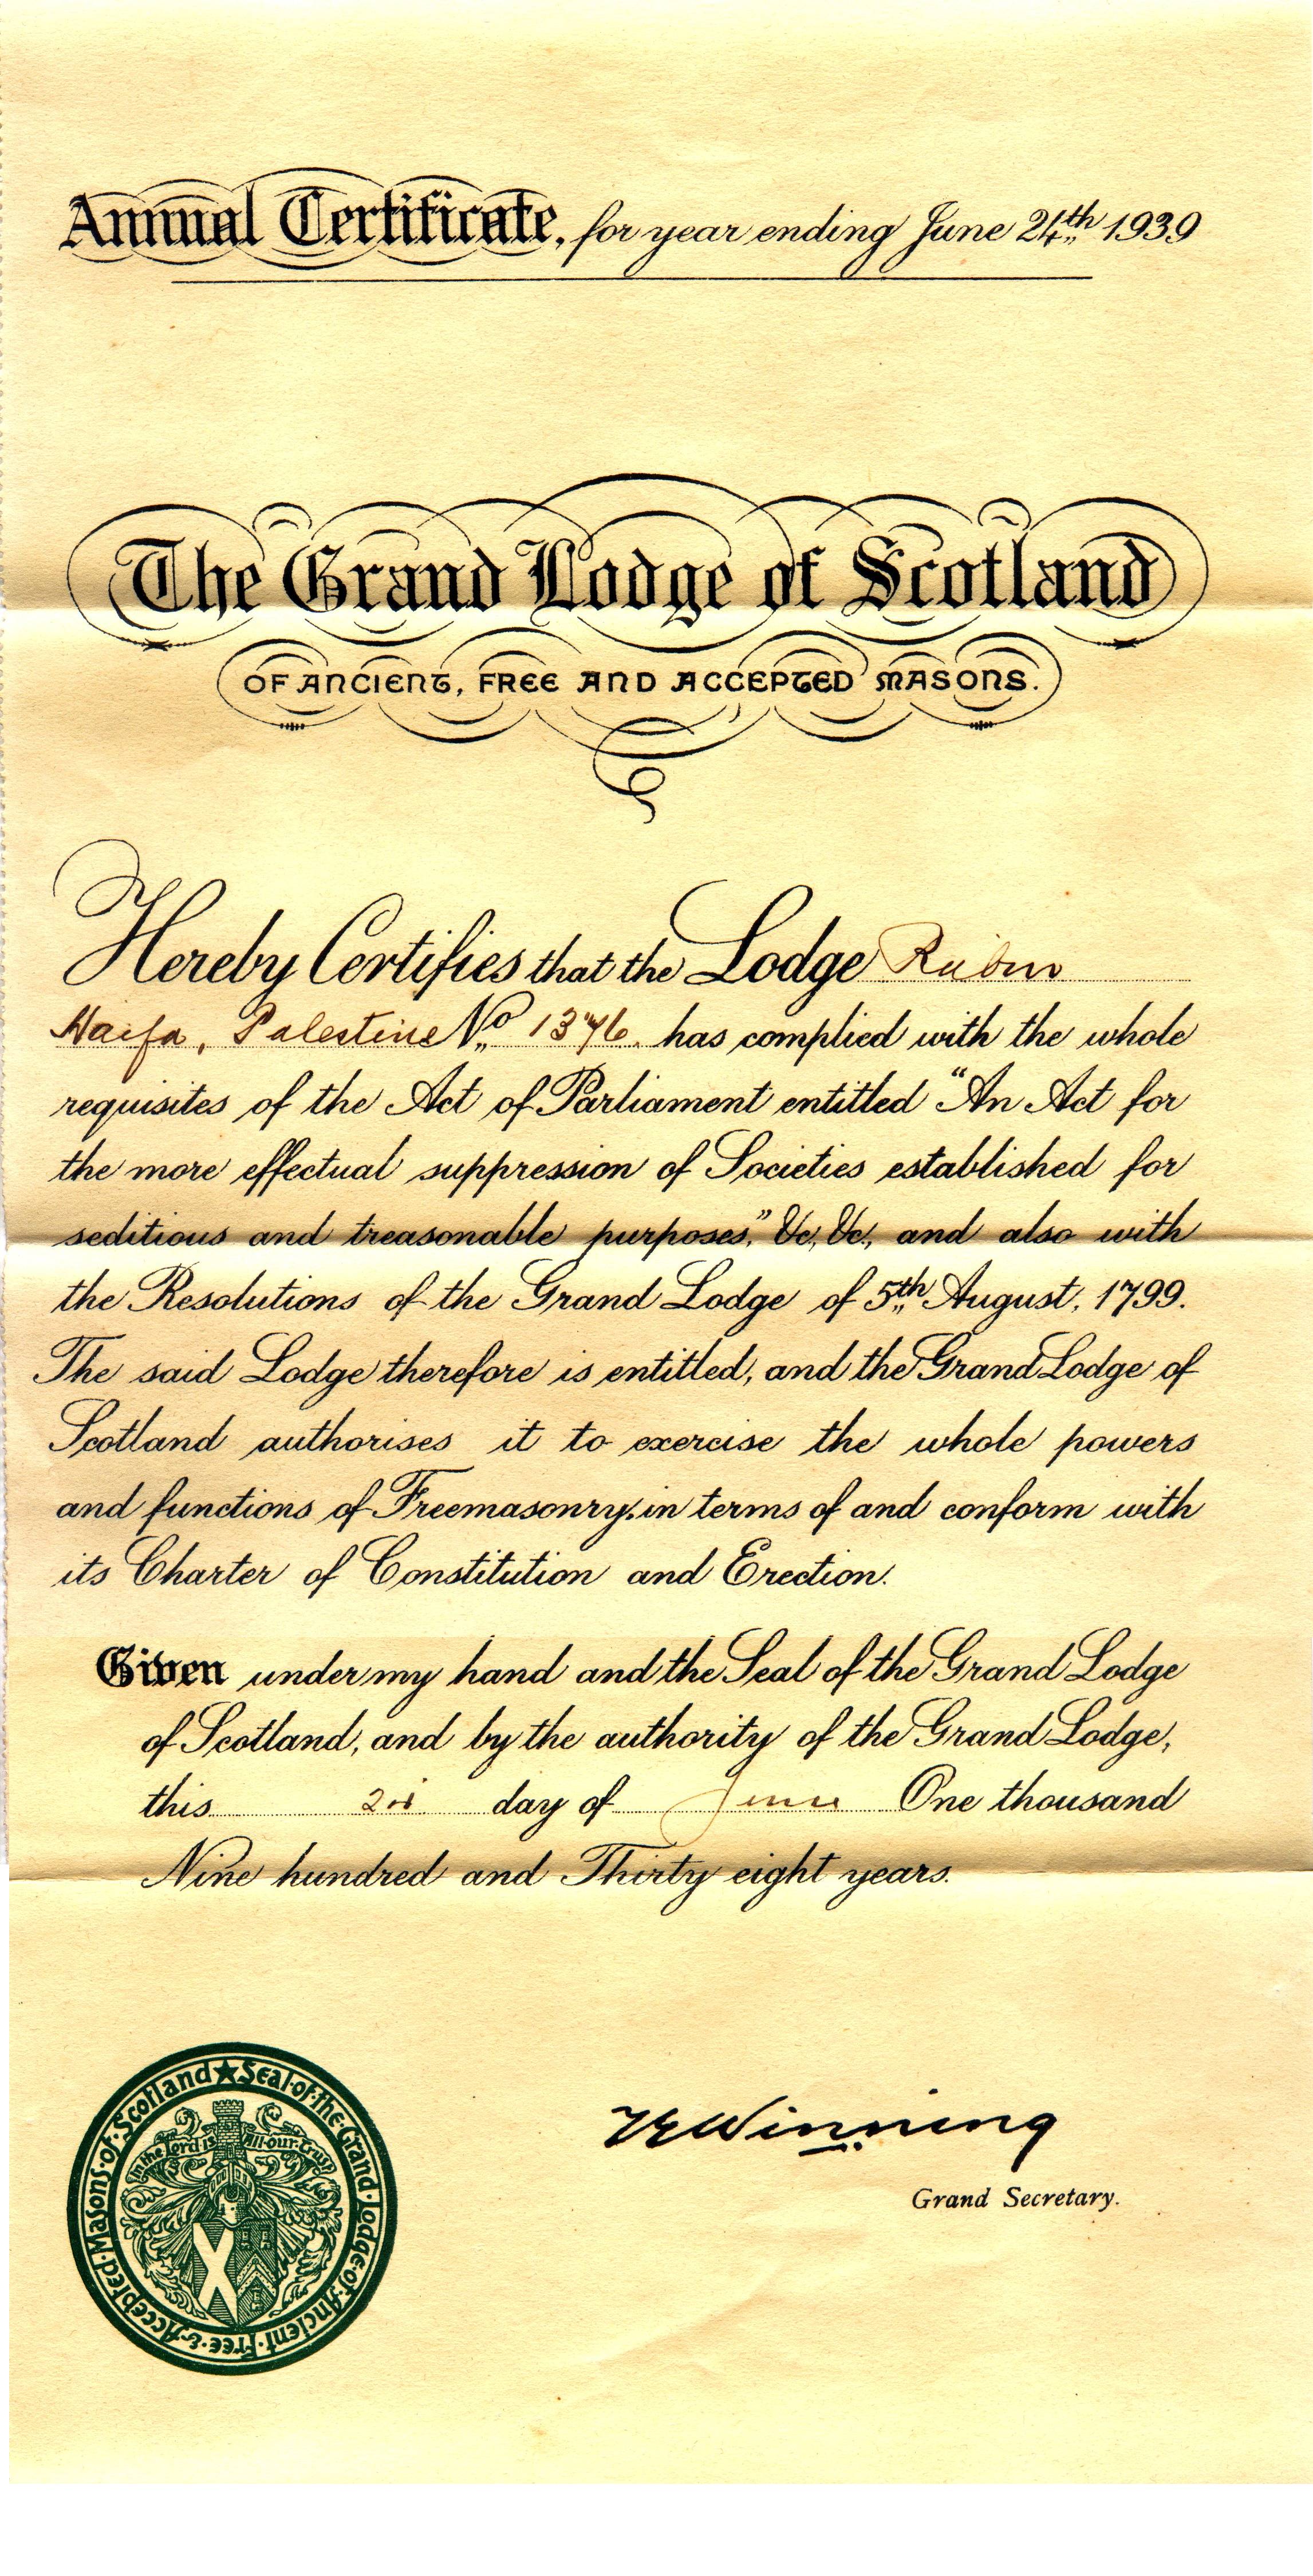 Annual Certificate, for year ending June 24th 1939
The Grand Lodge of Scotland
OF ANCIENT, FREE AND ACCEPTED MASONS.
Hereby Certifies that the Lodge
Haifa, Palestine No 1376. has complied with the whole
requisites of the Act of Parliament entitled "An Act for
the more effectual suppression of Societies established for
seditious and treasonable purposes," &c, &c, and also with
the Resolutions of the Grand Lodge of 5th August, 1799.
The said Lodge therefore is entitled, and the Grand Lodge of
Scotland authorises it to exercise the whole powers
and functions of Freemasonry, in terms of and conform with
its Charter of Constitution and Erection.
Given under my hand and the Seal of the Grand Lodge
of Scotland, and by the authority of the Grand Lodge,
this day of June One thousand
Nine hundred and Thirty eight years.
Seal of the Grand Lodge of Ancient Free & Accepted Masons of Scotland
In the Lord is All our Trust
Winning
Grand Secretary.